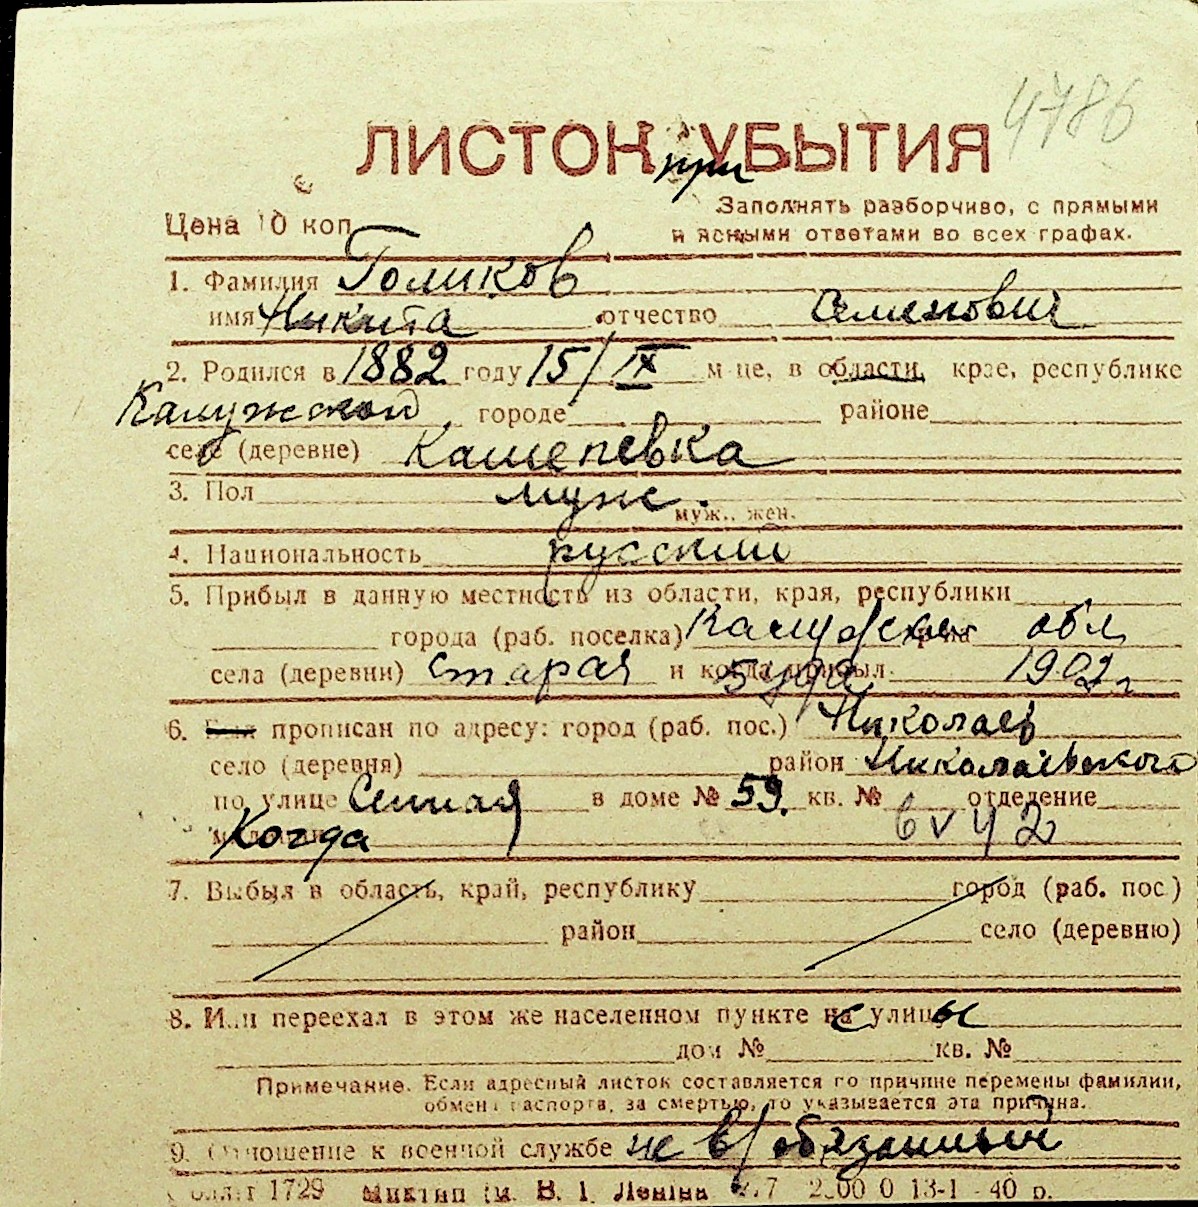 4786
ЛИСТОК УБЫТИЯ
при
Цена 10 коп.
Заполнять разборчиво, с прямыми
и ясными ответами во всех графах.
1. Фамилия Голиков
имя Никита отчество Семенович
2. Родился в 1882 году 15/IX м-це, в области, крае, республике
Калужской городе районе
селе (деревне) Кашепевка
3. Пол муж.
муж., жен.
4. Национальность русский
5. Прибыл в данную местность из области, края, республики
города (раб. поселка) обл
села (деревни) старая и когда прибыл 1902 г
6. Был прописан по адресу: город (раб. пос.) Николаев
село (деревня) район Николаевского
по улице Сенная в доме № 59. кв. № отделение
Когда
7. Выбыл в область, край, республику город (раб. пос.)
район село (деревню)
8. Или переехал в этом же населенном пункте на с улицы
дом № кв. №
Примечание. Если адресный листок составляется по причине перемены фамилии,
обмена паспорта, за смертью, то указывается эта причина.
9. Отношение к военной службе не в/обязанный
1729 В. І. Леніна 13-1 - 40 р.